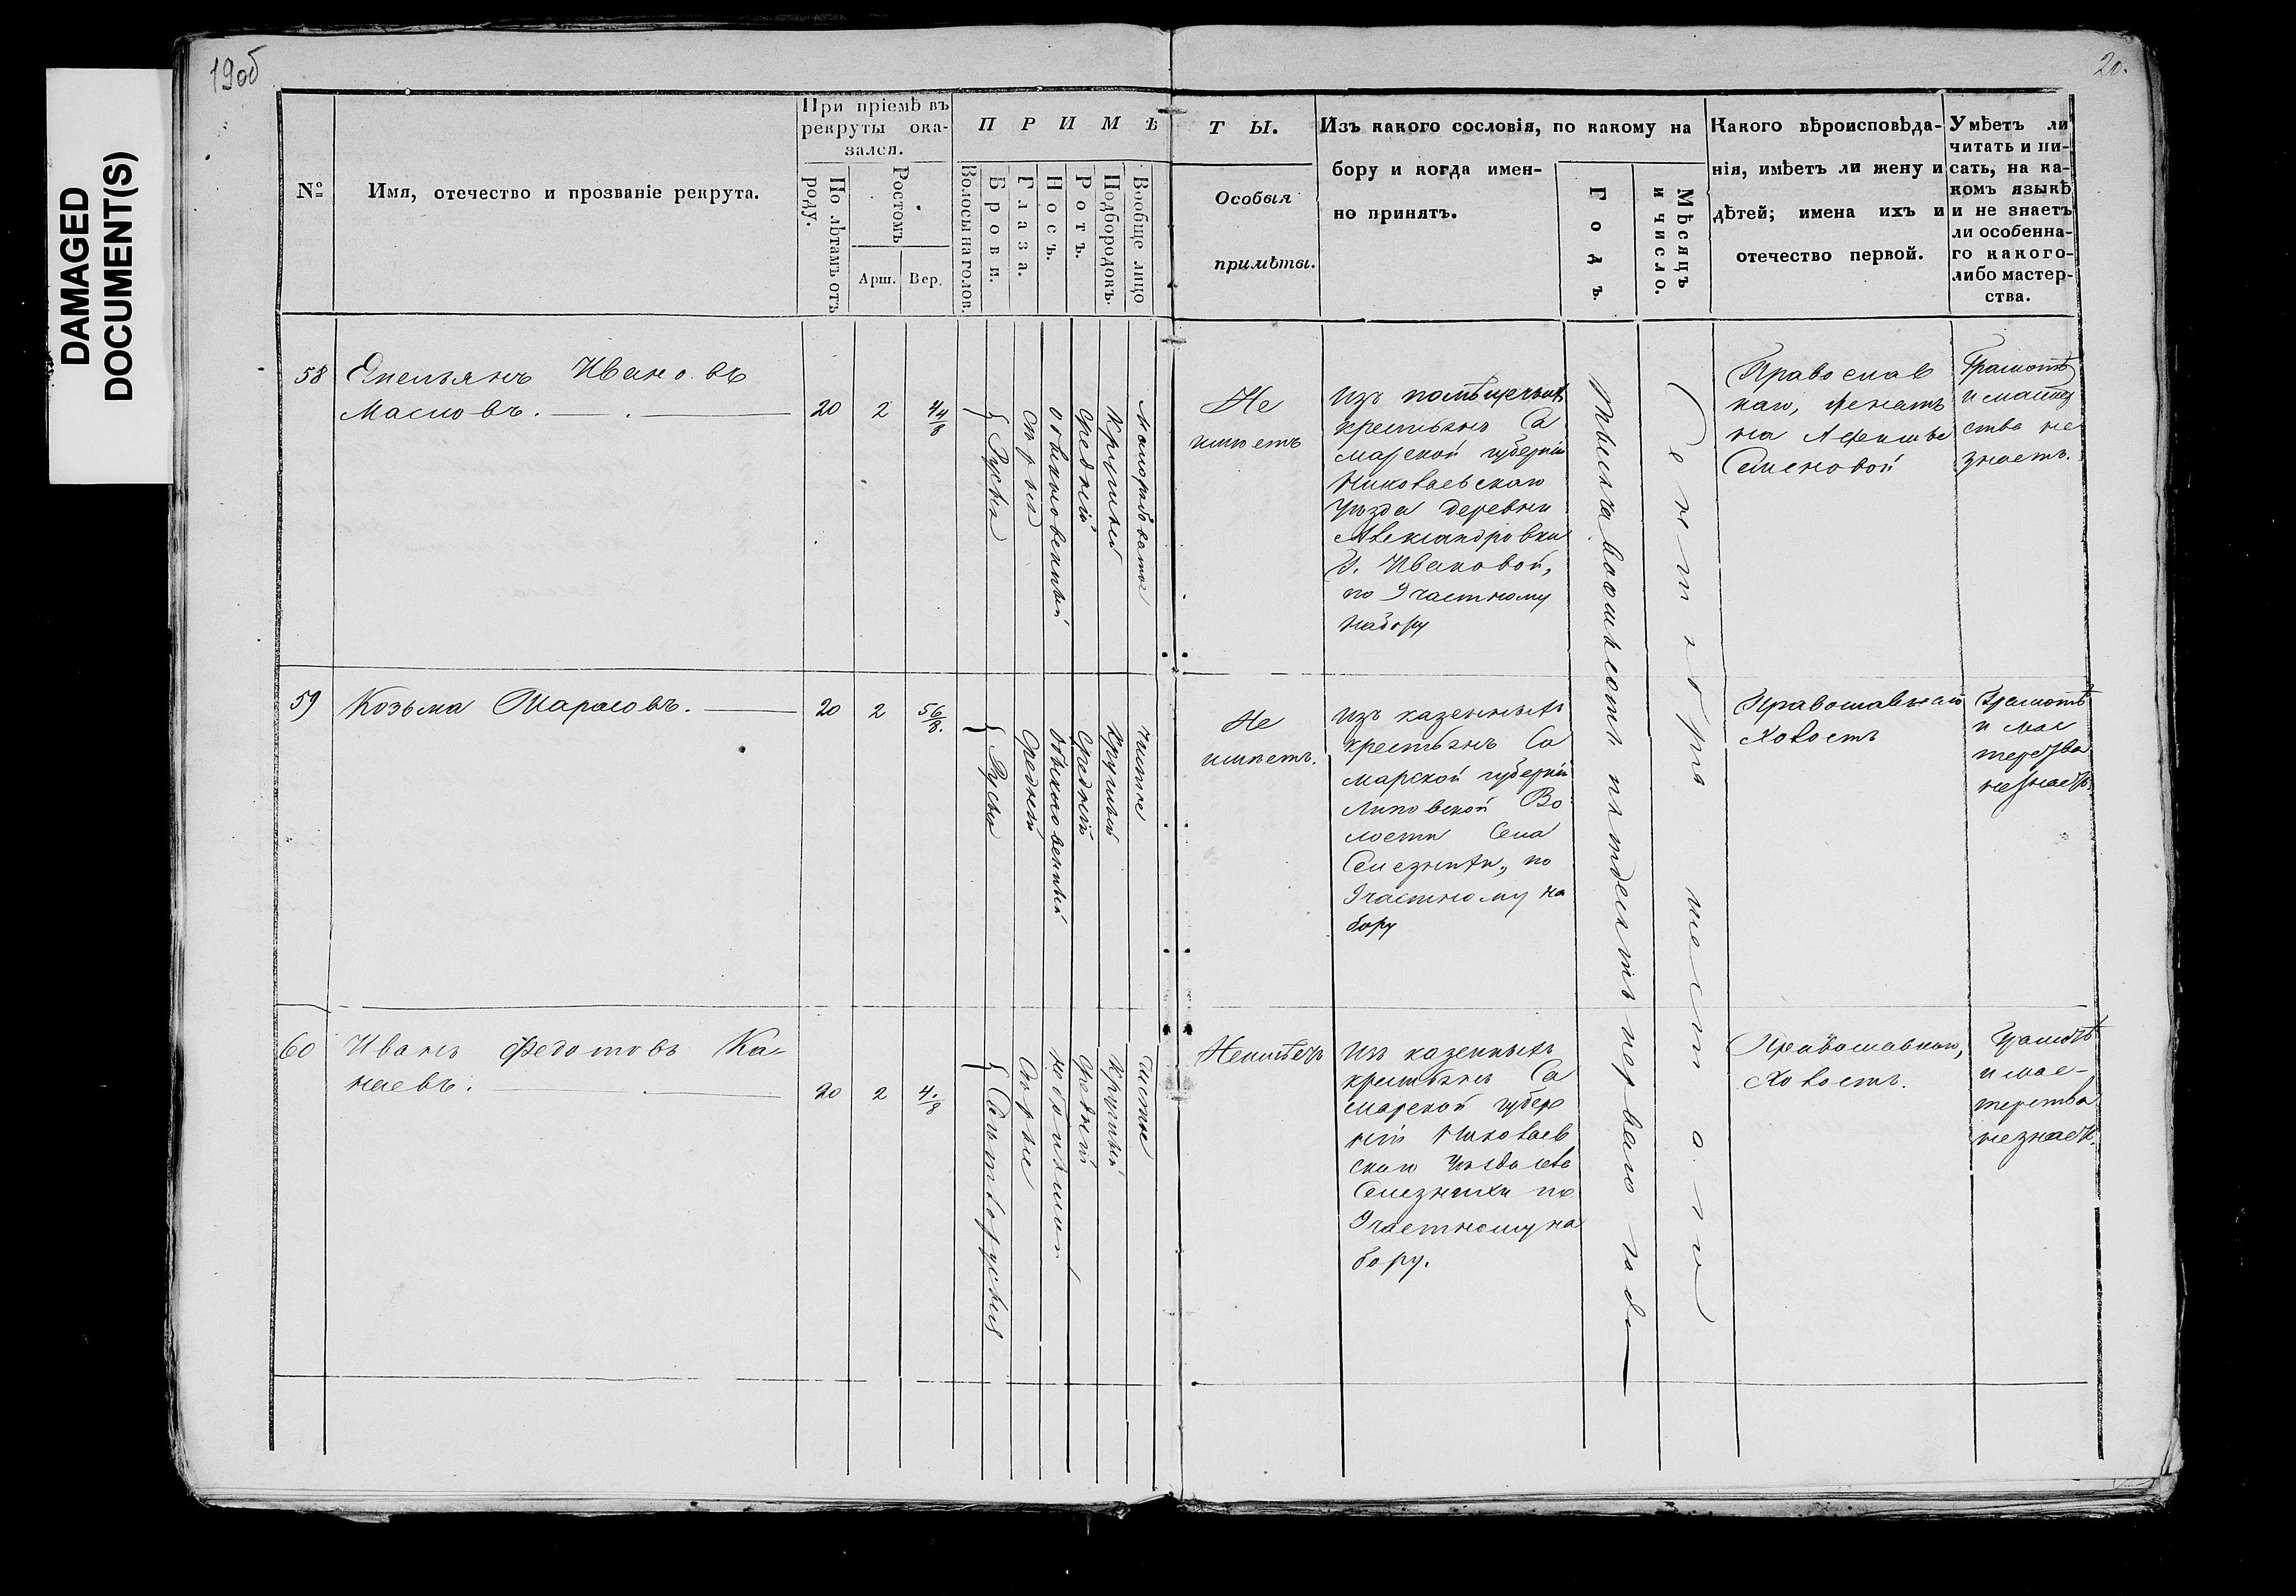 DAMAGED
DOCUMENT(S)
19об
20.
№
Имя, отечество и прозваніе рекрута.
При пріемѣ въ
рекруты ока-
зался.
По лѣтамъ отъ
роду.
Ростомъ
Арш.
Вер.
П Р И М Ѣ
Волосы на голов.
Брови.
Глаза.
Носъ.
Ротъ.
Подбородокъ.
Вообще лицо
Т Ы.
Особыя
примѣты.
Изъ какого сословія, по какому на
бору и когда имен-
но принятъ.
Годъ.
Мѣсяцъ
и число.
Какого вѣроисповѣда-
нія, имѣетъ ли жену и
дѣтей; имена ихъ и
отечество первой.
Умѣетъ ли
читать и пи-
сать, на ка-
комъ языкѣ
и не знаетъ
ли особенна-
го какого-
либо мастер-
ства.
58
Емельянъ Ивановъ
Масловъ.
20
2
4 4/8
Русыя
Сѣрыя
обыкновенный
Средній
Круглый
Не
имѣетъ
Изъ помѣщичьихъ
крестьянъ Са
марской губерніи
Николаевскаго
Уѣзда деревни
Александровки
Г. Ивановой,
по 9 частному
набору
Тысяча восемьсотъ пятдесятъ перваго года
Сентября шестаго
Православ
наго, женатъ
на
Семеновой
Грамотѣ
и мастер
ства не
знаетъ.
59
Козьма Марасовъ.
20
2
5 6/8.
Русыя
Средній
Обыкновенный
Средній
Круглый
Чистое
Не
имѣетъ.
Изъ казенныхъ
крестьянъ Са
марской губерніи
Липовской Во
лости Села
Селезнихи, по
9 частному на
бору
Православнаго
Холостъ
Грамотѣ
и мас
терства
незнаетъ.
60
Иванъ Федотовъ Ка-
наевъ.
20
2
4/8
Свѣтлорусыя
Сѣрые
небольшой
Средній
Круглый
Чистое
Неимѣетъ
Изъ казенныхъ
крестьянъ Са
марской губер
ніи Николаев
скаго Уѣзда села
Селезнихи по
9 частному на
бору.
Православнаго,
Холостъ.
Грамотѣ
и мас-
терства
незнаетъ.